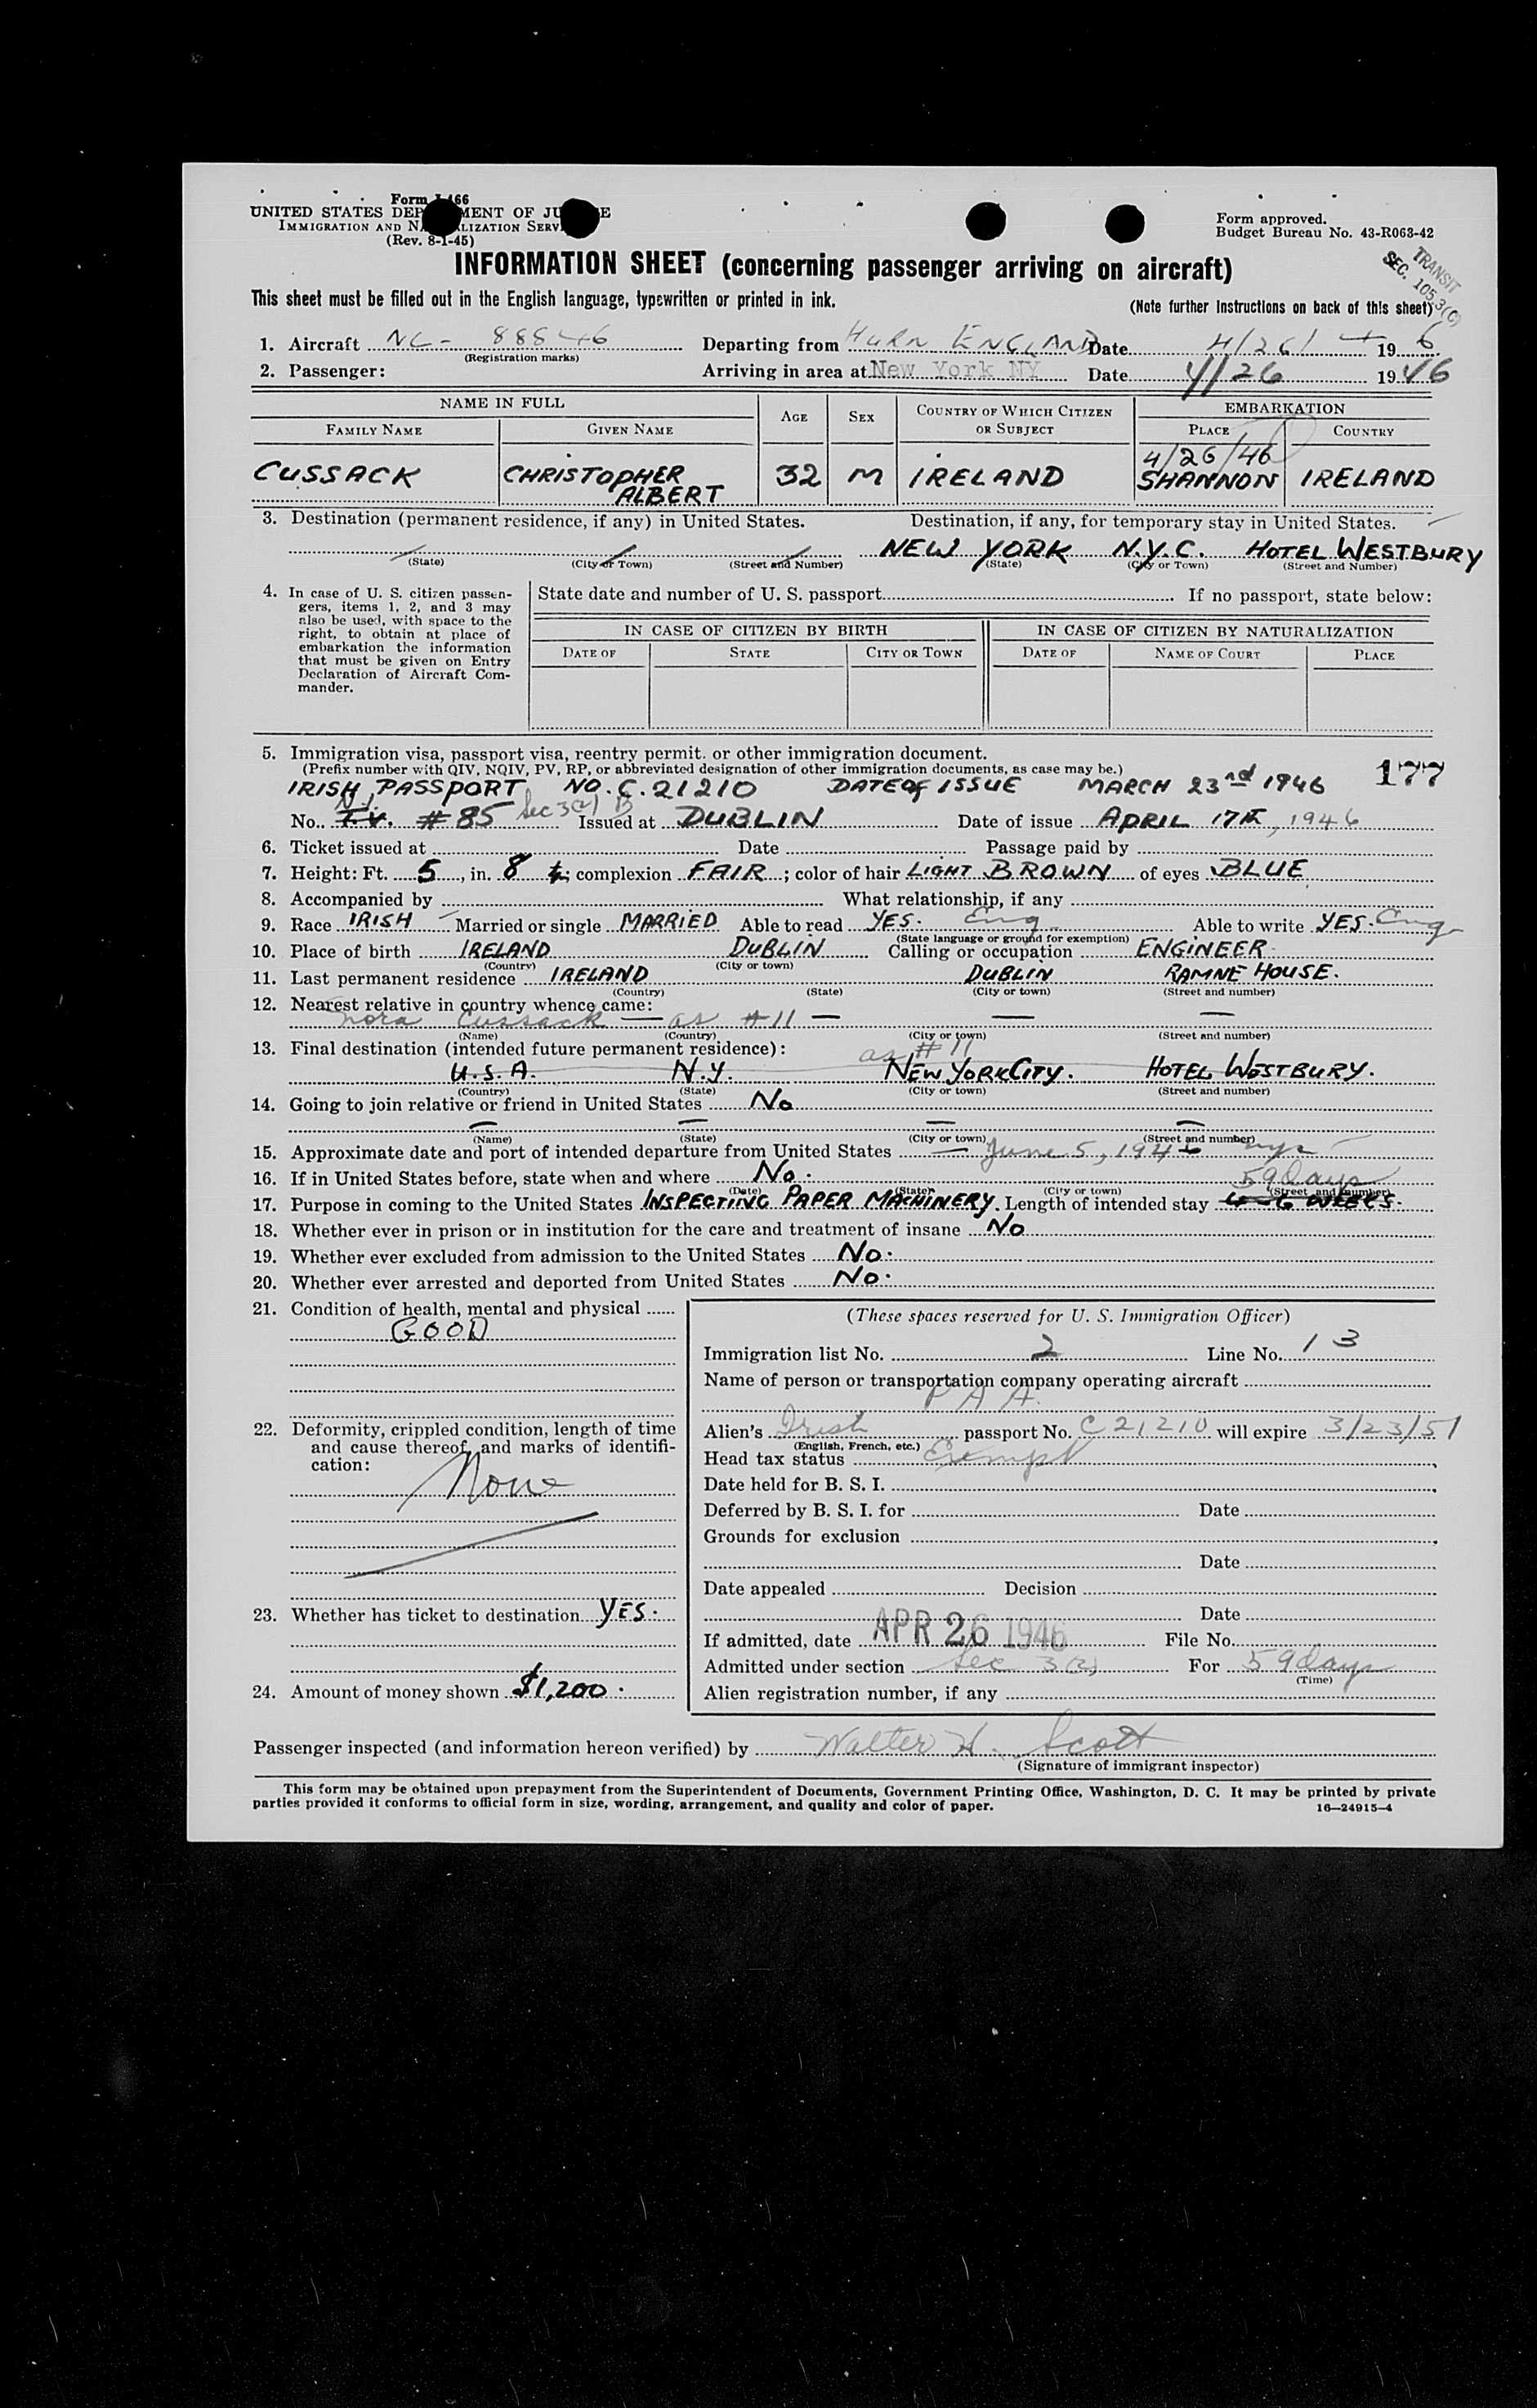 Form I-466
UNITED STATES DEPARTMENT OF JUSTICE
IMMIGRATION AND NATURALIZATION SERVICE
(Rev. 8-1-45)
Form approved.
Budget Bureau No. 43-R063-42
INFORMATION SHEET (concerning passenger arriving on aircraft)
TRANSIT
SEC. 105.3(c)
This sheet must be filled out in the English language, typewritten or printed in ink. (Note further instructions on back of this sheet)
1. Aircraft NC- 88846 Departing from HURN ENGLAND Date 4/26/ 4 19 6
(Registration marks)
2. Passenger: Arriving in area at New York NY Date 4/26 1946
NAME IN FULL AGE SEX COUNTRY OF WHICH CITIZEN OR SUBJECT EMBARKATION
FAMILY NAME GIVEN NAME PLACE COUNTRY
4/26/46
CUSSACK CHRISTOPHER ALBERT 32 M IRELAND SHANNON IRELAND
3. Destination (permanent residence, if any) in United States. Destination, if any, for temporary stay in United States.
NEW YORK N.Y.C. HOTEL WESTBURY
(State) (City or Town) (Street and Number) (State) (City or Town) (Street and Number)
4. In case of U. S. citizen passengers, items 1, 2, and 3 may also be used, with space to the right, to obtain at place of embarkation the information that must be given on Entry Declaration of Aircraft Commander.
State date and number of U. S. passport If no passport, state below:
IN CASE OF CITIZEN BY BIRTH IN CASE OF CITIZEN BY NATURALIZATION
DATE OF STATE CITY OR TOWN DATE OF NAME OF COURT PLACE
5. Immigration visa, passport visa, reentry permit. or other immigration document.
(Prefix number with QIV, NQIV, PV, RP, or abbreviated designation of other immigration documents, as case may be.)
177
IRISH PASSPORT NO. C. 21210 DATE OF ISSUE MARCH 23rd 1946
No. T.V. # 85 Sec 3(2) B Issued at DUBLIN Date of issue APRIL 17th, 1946
6. Ticket issued at Date Passage paid by
7. Height: Ft. 5, in. 8 ; complexion FAIR ; color of hair LIGHT BROWN of eyes BLUE
8. Accompanied by What relationship, if any
9. Race IRISH Married or single MARRIED Able to read YES. Eng Able to write YES. Eng
(State language or ground for exemption)
10. Place of birth IRELAND DUBLIN Calling or occupation ENGINEER
(Country) (City or town)
11. Last permanent residence IRELAND DUBLIN RAMNE HOUSE.
(Country) (State) (City or town) (Street and number)
12. Nearest relative in country whence came:
Nora Cussack — as #11 — — —
(Name) (Country) (City or town) (Street and number)
13. Final destination (intended future permanent residence): as # 11
U.S.A. N.Y. NEW YORK CITY. HOTEL WESTBURY.
(Country) (State) (City or town) (Street and number)
14. Going to join relative or friend in United States No
— — — —
(Name) (State) (City or town) (Street and number)
15. Approximate date and port of intended departure from United States — June 5, 1946 nyc
16. If in United States before, state when and where No.
(Date) (State) (City or town) (Street and number)
59 days
17. Purpose in coming to the United States INSPECTING PAPER MACHINERY. Length of intended stay 4-6 WEEKS.
18. Whether ever in prison or in institution for the care and treatment of insane No
19. Whether ever excluded from admission to the United States No.
20. Whether ever arrested and deported from United States No.
21. Condition of health, mental and physical
GOOD
22. Deformity, crippled condition, length of time and cause thereof, and marks of identification:
None
23. Whether has ticket to destination YES.
24. Amount of money shown $1,200.
(These spaces reserved for U. S. Immigration Officer)
Immigration list No. 2 Line No. 13
Name of person or transportation company operating aircraft
P A A
Alien's Irish passport No. C 21210 will expire 3/23/51
(English, French, etc.)
Head tax status Exempt
Date held for B. S. I.
Deferred by B. S. I. for Date
Grounds for exclusion
Date
Date appealed Decision
Date
If admitted, date APR 26 1946 File No.
Admitted under section Sec 3(2) For 59 days
(Time)
Alien registration number, if any
Passenger inspected (and information hereon verified) by Walter H. Scott
(Signature of immigrant inspector)
This form may be obtained upon prepayment from the Superintendent of Documents, Government Printing Office, Washington, D. C. It may be printed by private
parties provided it conforms to official form in size, wording, arrangement, and quality and color of paper. 16—24915-4